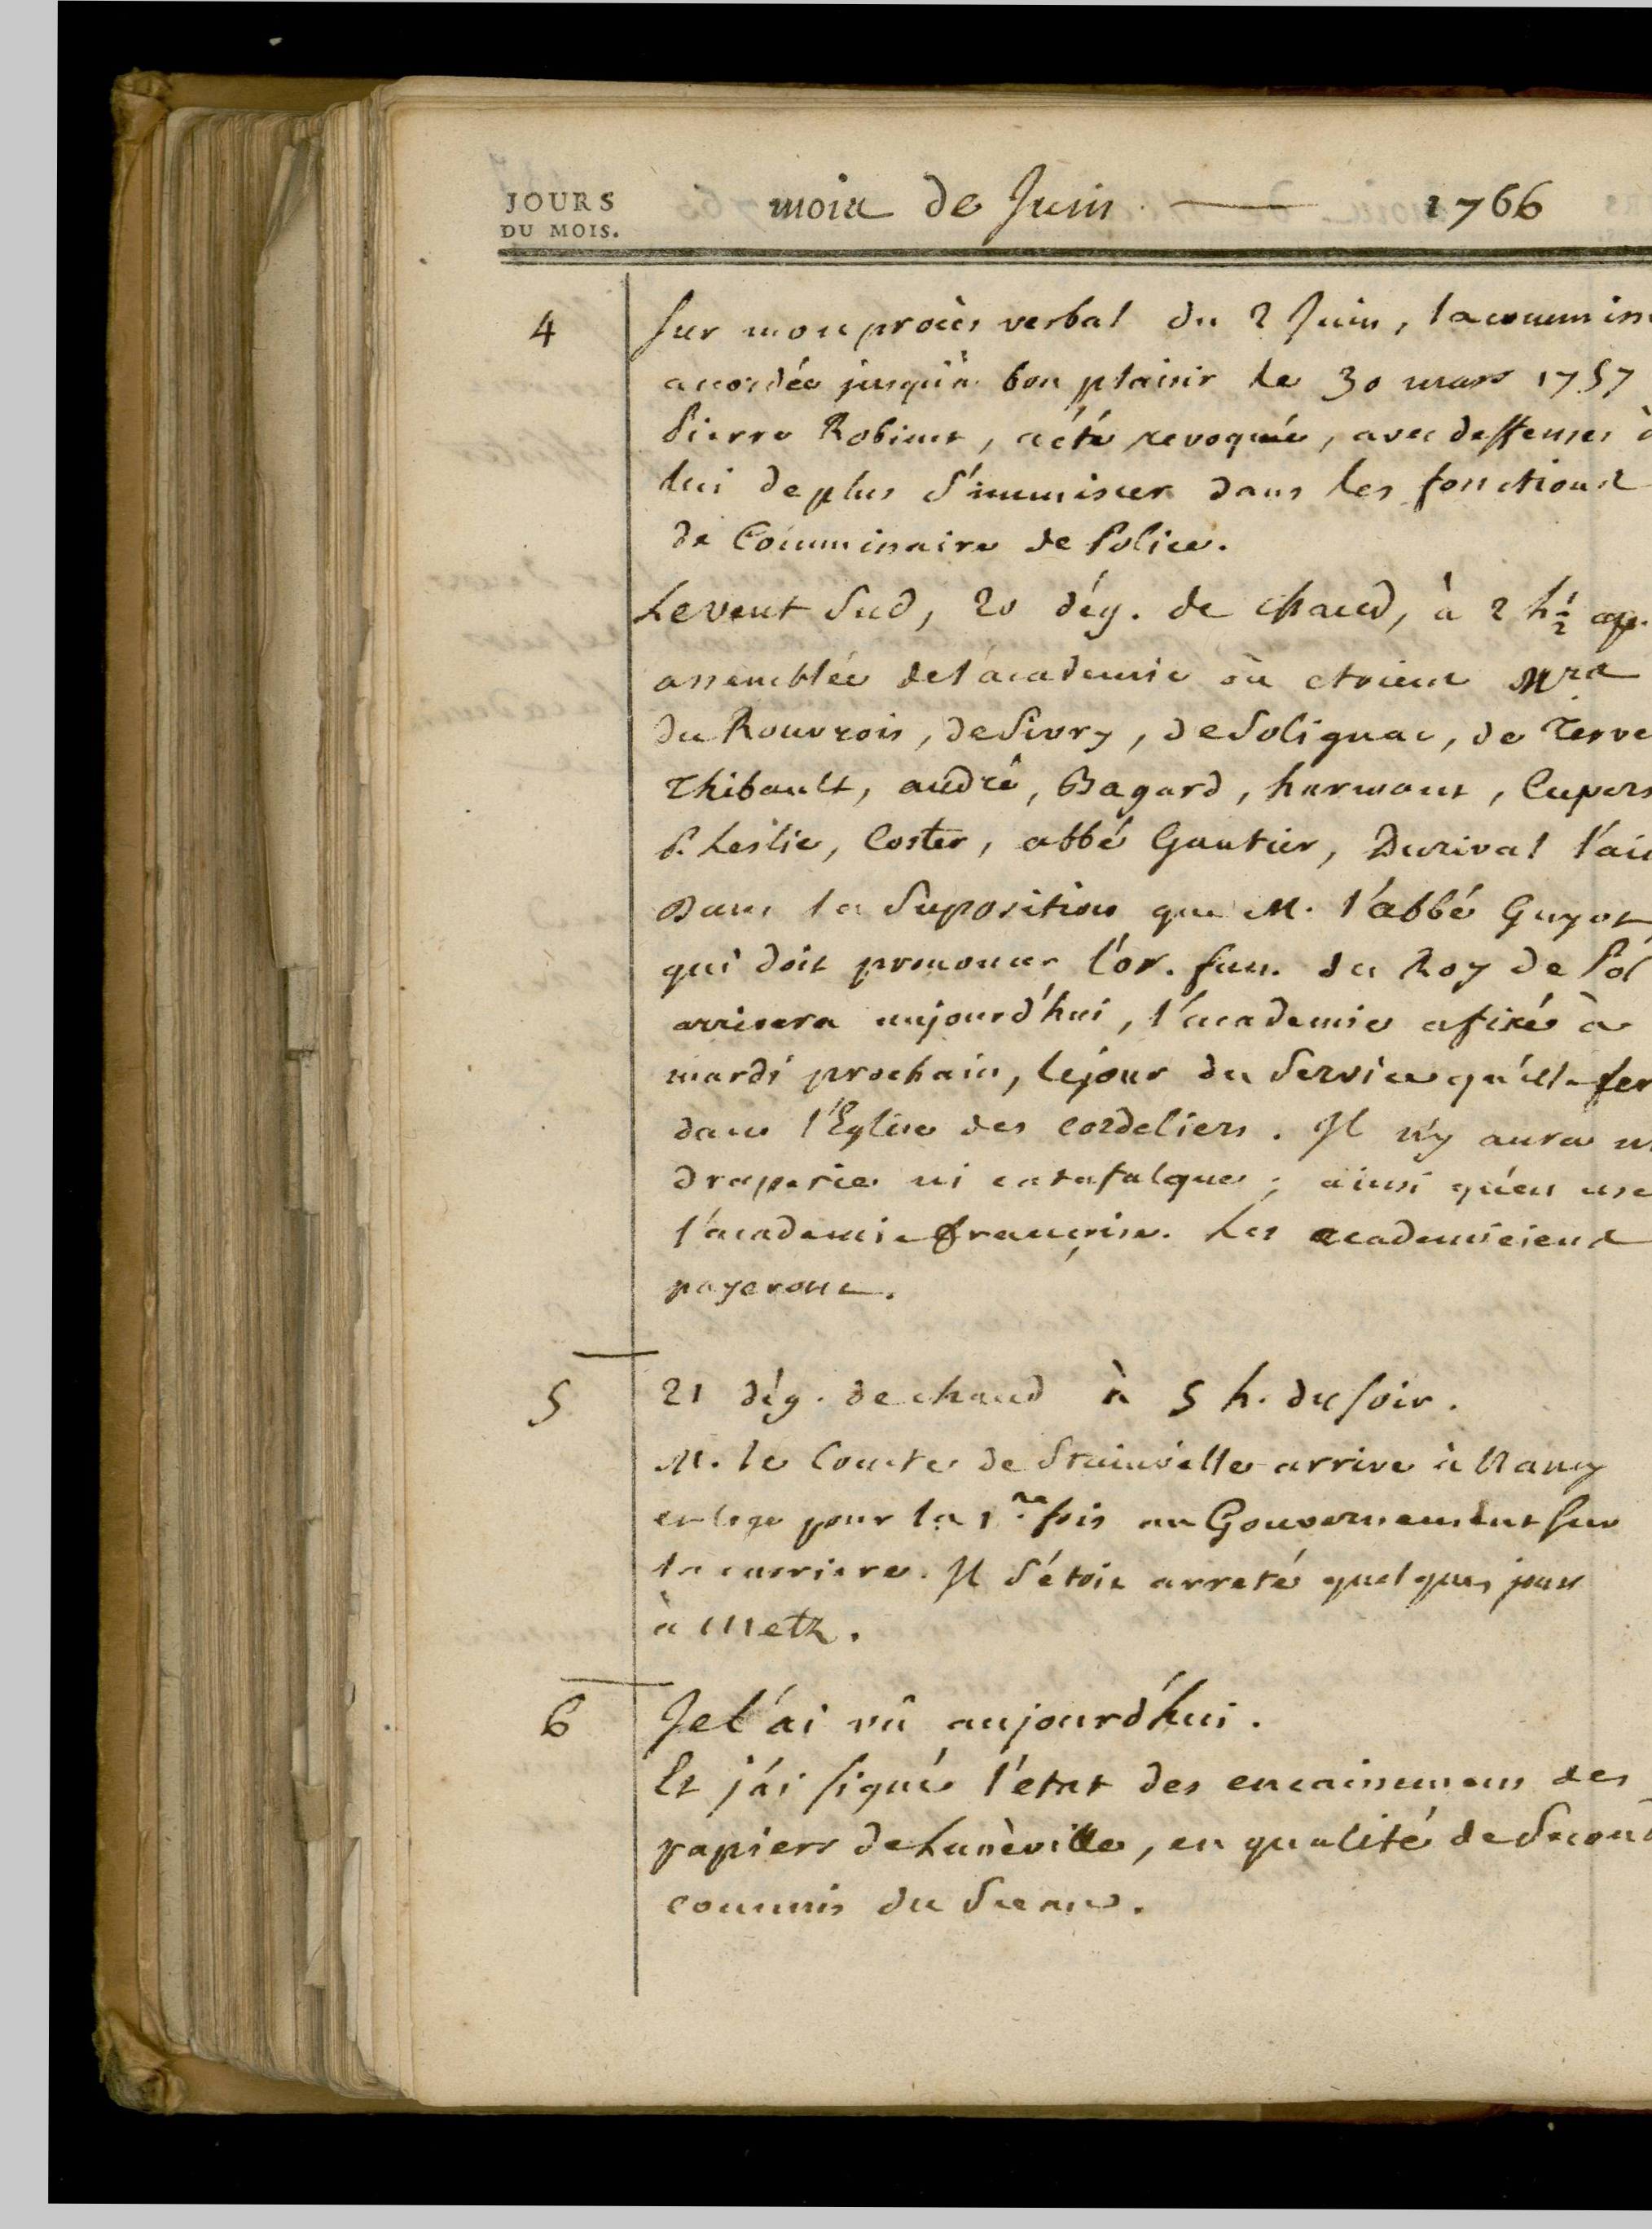 JOURS
DU MOIS.
mois de Juin — 1766
4
Sur mon procès verbal du 2 Juin, la commiss
accordée jusqu'à bon plaisir le 30 mars 1757
Pierre Robinet, a été revoquée, avec deffenses à
lui de plus s'immiscer dans les fonctions
de Commissaire de Police.
Le vent Sud, 20 dég. de chaud, à 2 h ½ ap.
assemblée de l'academie où etoient Mrs
du Rouvrois, de Sivry, de Solignac, de Terve
Thibault, andré, Bagard, harmant, Cupers
P. Leslie, Coster, abbé Gautier, Durival l'ai
Dans la Suposition que M. l'abbé Guyot
qui doit prononcer l'or. fun. du Roy de Pol
arrivera aujourd'hui, l'academie a fixé à
mardi prochain, le jour du Service qu'elle fer
dans l'Eglise des cordeliers. Il n'y aura n
draperie ni catafalque ; ainsi qu'en use
l'academie françoise. Les academiciens
payeront.
5
21 dég. de chaud à 5 h. du soir.
M. le Comte de Stainville arrive à Nancy
et loge pour la 1re fois au Gouvernement sur
la carriere. Il s'étoit arreté quelques jours
à Metz.
6
Je l'ai vû aujourd'hui.
Et j'ai signé l'etat des encaissemens des
papiers de Lunéville, en qualité de Second
commis du Sceau.